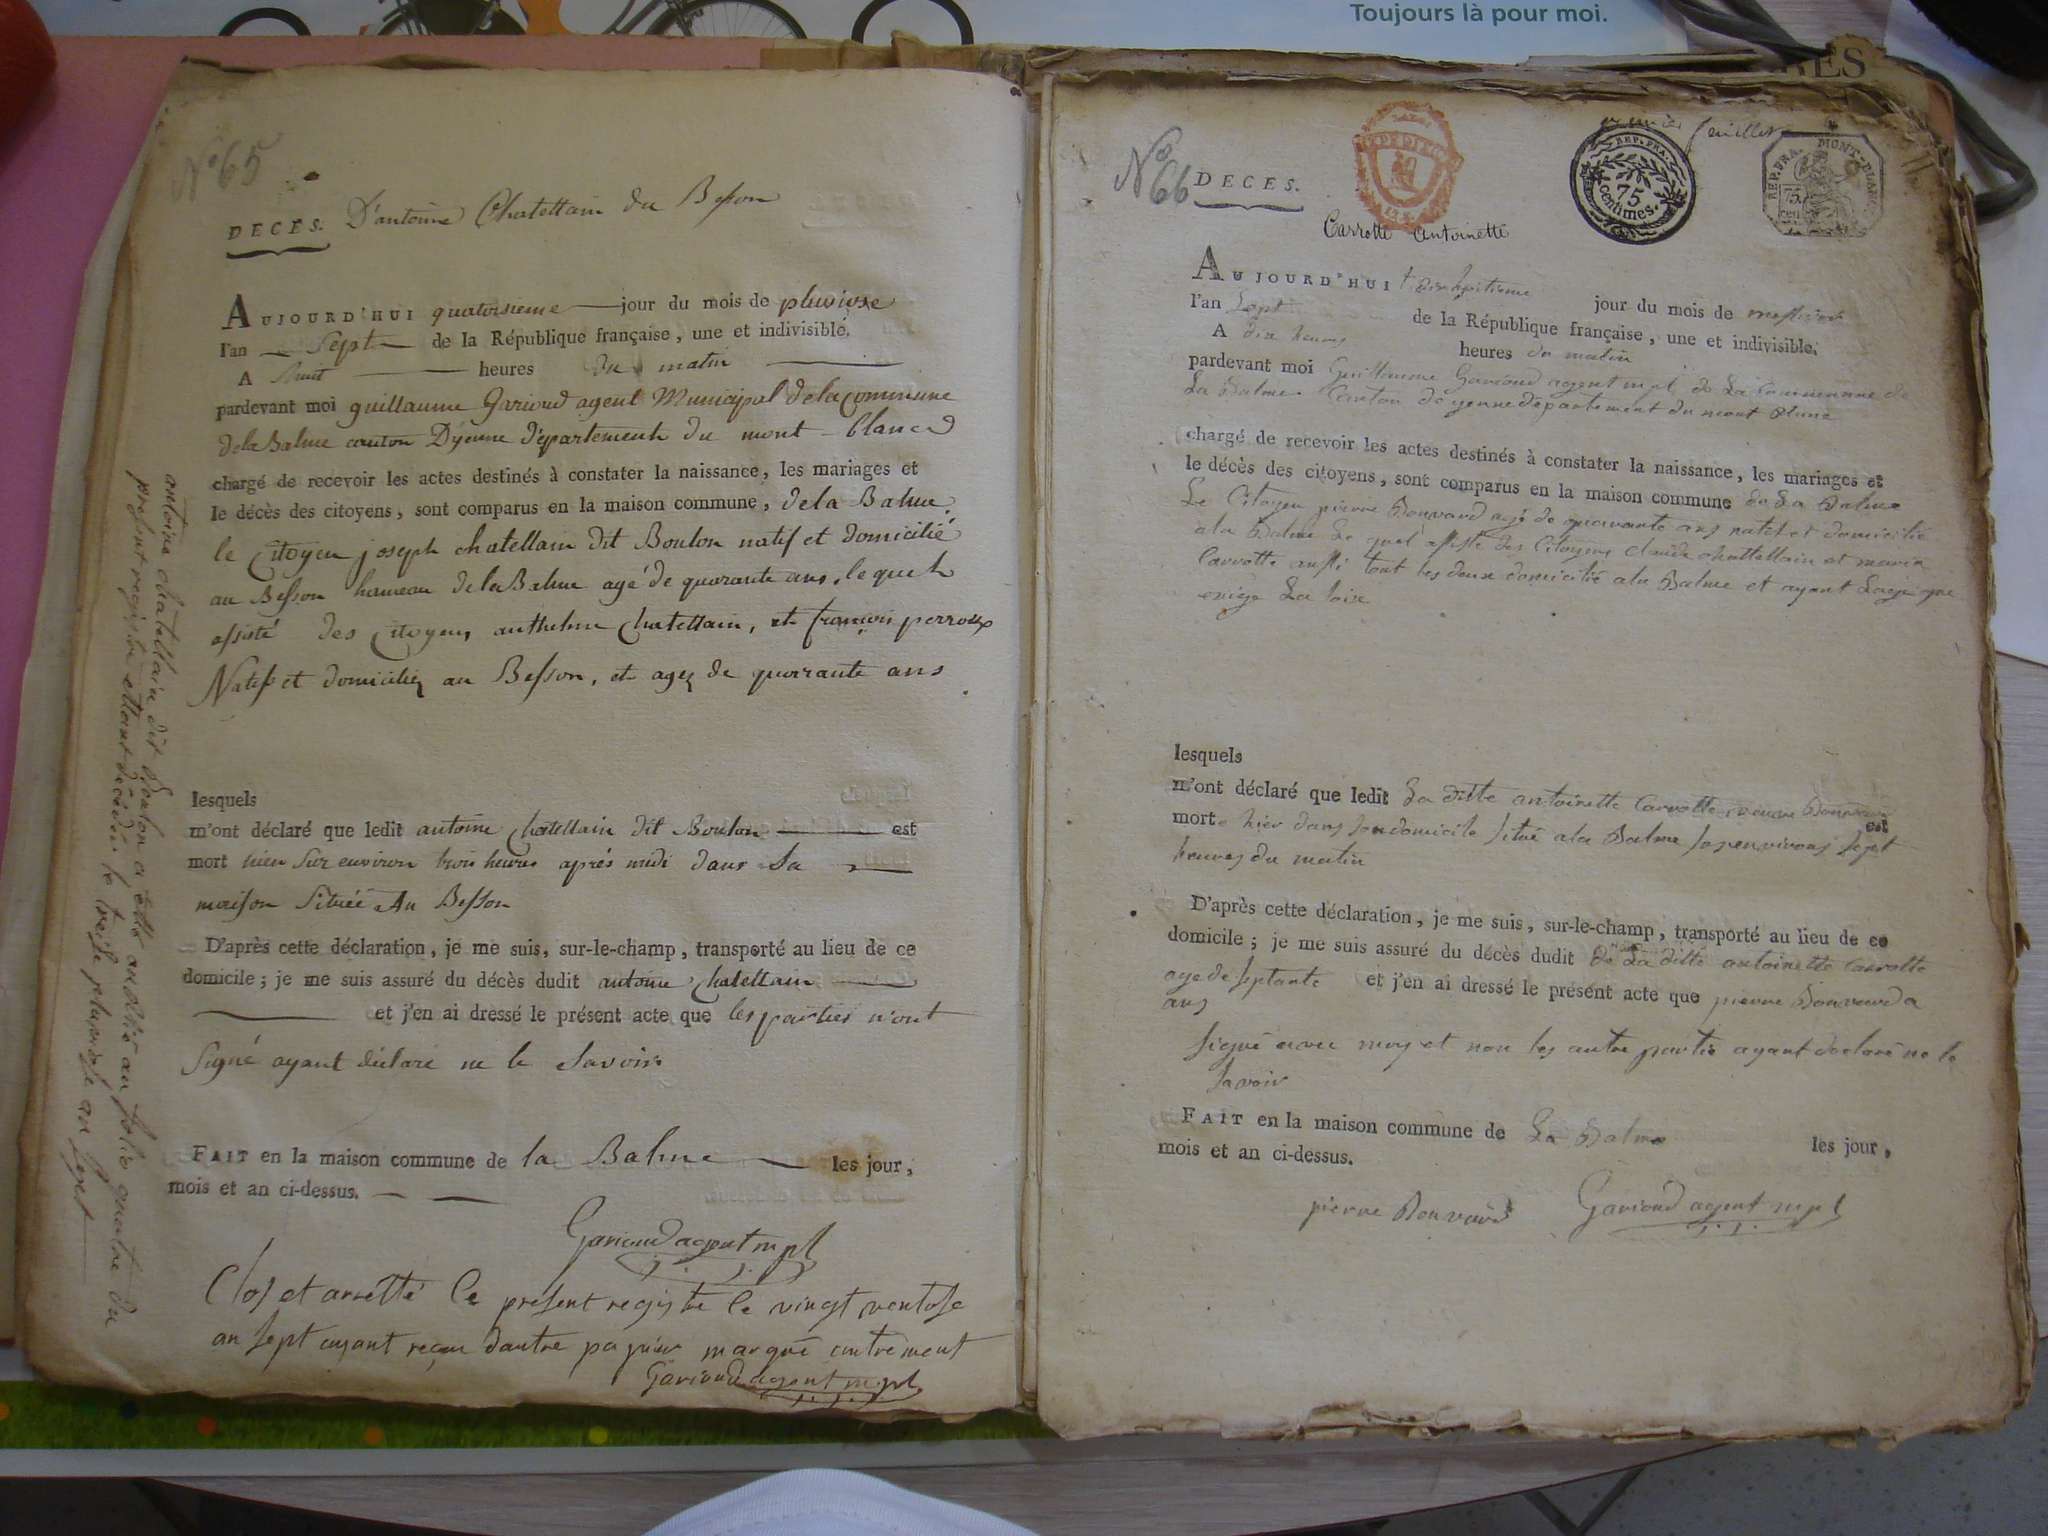 Toujours là pour moi.
RES
N° 65
DECES. D'antoine Chatellain du Besson
AUJOURD'HUI quatorsieme jour du mois de pluviose
l'an Sept de la République française, une et indivisible.
A huit heures du matin
pardevant moi guillaume Garioud agent Municipal de la commune
de la Balme canton D'yenne département du mont-blanc
chargé de recevoir les actes destinés à constater la naissance, les mariages et
le décès des citoyens, sont comparus en la maison commune, de la Balme.
le Citoyen joseph chatellain dit Boulon natif et domicilié
au Besson hameau de la Balme agé de quarante ans, lequel
assisté des Citoyens anthelme Chatellain, et françois perroux
Natifs et domiciliez au Besson, et agez de quarrante ans
lesquels
m'ont déclaré que ledit antoine Chatellain dit Boulon est
mort hier sur environ trois heures après midi dans Sa
maison Située Au Besson
D'après cette déclaration, je me suis, sur-le-champ, transporté au lieu de ce
domicile; je me suis assuré du décès dudit antoine Chatellain
et j'en ai dressé le présent acte que les parties n'ont
Signé ayant déclaré ne le Savoir
FAIT en la maison commune de la Balme les jour,
mois et an ci-dessus.
Garioud agent mpl
Clos et arretté le présent registre le vingt ventose
an sept ayant reçu d'autre papier marqué
Garioud agent mpl
antoine chatellain dit Boulon au folio quatre du
présent registre décédé le treise pluviose an sept
N° 66
DECES.
REP. FRA.
75
centimes.
REP. FRA. MONT-BLANC
75
cen
feuillet
Carrotte Antoinette
AUJOURD'HUI dixhuitieme jour du mois de messidor
l'an Sept de la République française, une et indivisible.
A dix heures heures du matin
pardevant moi Guillaume Garioud agent mpl de La Commune de
La Balme Canton de yenne département du mont blanc
chargé de recevoir les actes destinés à constater la naissance, les mariages et
le décès des citoyens, sont comparus en la maison commune de La Balme
Le Citoyen pierre Bouvard agé de quarante ans natif et domicilié
a la Balme Le quel assisté des Citoyens claude chattellain et marin
Carrotte aussi tout les deux domicilié a la Balme et ayant Lage que
exige La loix
lesquels
m'ont déclaré que ledit La ditte antoinette Carrotte veuve Bouvard est
morte hier dans son domicile situé a la Balme sur environs sept
heures du matin
D'après cette déclaration, je me suis, sur-le-champ, transporté au lieu de ce
domicile; je me suis assuré du décès dudit de La ditte antoinette Carrotte
age de septante et j'en ai dressé le présent acte que pierre Bouvard a
ans
signé avec moy et non les autre partie ayant declaré ne le
savoir
FAIT en la maison commune de La Balme les jour,
mois et an ci-dessus.
pierre Bouvard Garioud agent mpl